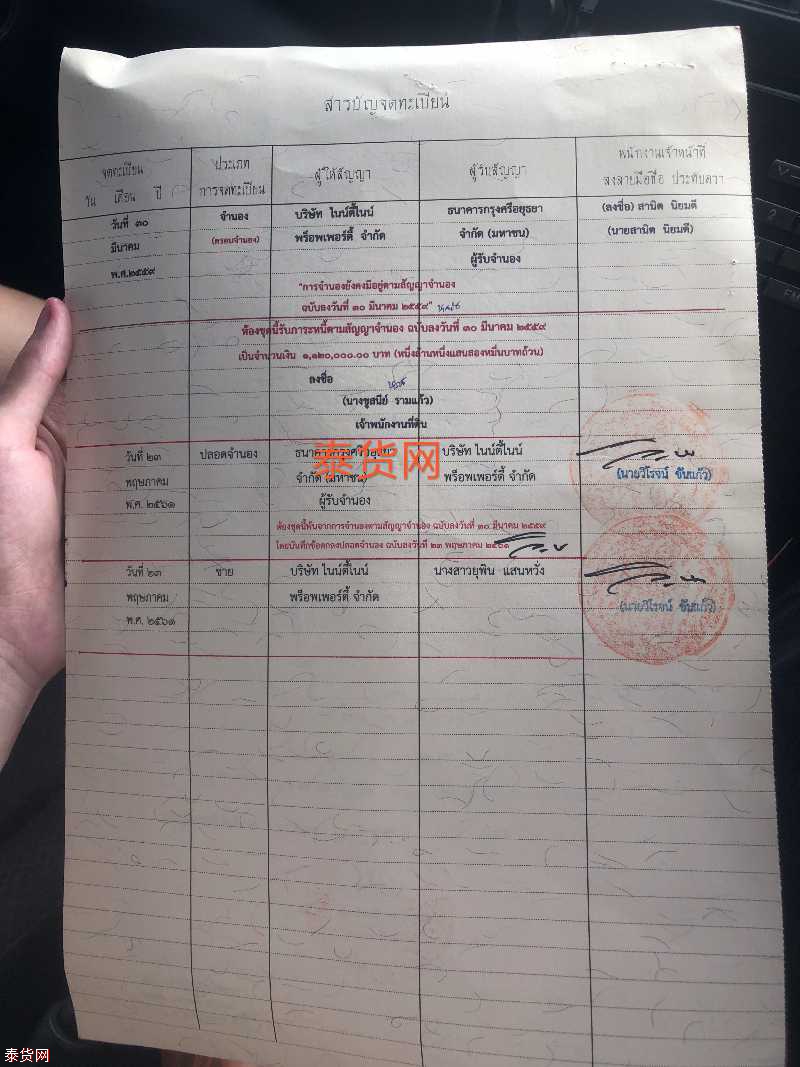 สารบัญจดทะเบียน
จดทะเบียน
วัน เดือน ปี
ประเภท
การจดทะเบียน
ผู้ให้สัญญา
ผู้รับสัญญา
พนักงานเจ้าหน้าที่
ลงลายมือชื่อ ประทับตรา
วันที่ ๓๐
มีนาคม
พ.ศ.๒๕๕๙
จำนอง
(ครอบจำนอง)
บริษัท ไนน์ตี้ไนน์
พร็อพเพอร์ตี้ จำกัด
ธนาคารกรุงศรีอยุธยา
จำกัด (มหาชน)
ผู้รับจำนอง
(ลงชื่อ) สานิต นิยมดี
(นายสานิต นิยมดี)
"การจำนองยังคงมีอยู่ตามสัญญาจำนอง
ฉบับลงวันที่ ๓๐ มีนาคม ๒๕๕๙"
ห้องชุดนี้รับภาระหนี้ตามสัญญาจำนอง ฉบับลงวันที่ ๓๐ มีนาคม ๒๕๕๙
เป็นจำนวนเงิน ๑,๑๒๐,๐๐๐.๐๐ บาท (หนึ่งล้านหนึ่งแสนสองหมื่นบาทถ้วน)
ลงชื่อ
(นางชูสนีย์ รามแก้ว)
เจ้าพนักงานที่ดิน
วันที่ ๒๓
พฤษภาคม
พ.ศ. ๒๕๖๑
ปลอดจำนอง
ธนาคารกรุงศรีอยุธยา
จำกัด (มหาชน)
ผู้รับจำนอง
บริษัท ไนน์ตี้ไนน์
พร็อพเพอร์ตี้ จำกัด
(นายวิโรจน์ ขันแก้ว)
ห้องชุดนี้พ้นจากการจำนองตามสัญญาจำนอง ฉบับลงวันที่ ๓๐ มีนาคม ๒๕๕๙
โดยบันทึกข้อตกลงปลอดจำนอง ฉบับลงวันที่ ๒๓ พฤษภาคม ๒๕๖๑
วันที่ ๒๓
พฤษภาคม
พ.ศ. ๒๕๖๑
ขาย
บริษัท ไนน์ตี้ไนน์
พร็อพเพอร์ตี้ จำกัด
นางสาวยุพิน แสนหวั่ง
(นายวิโรจน์ ขันแก้ว)
泰货网
泰货网